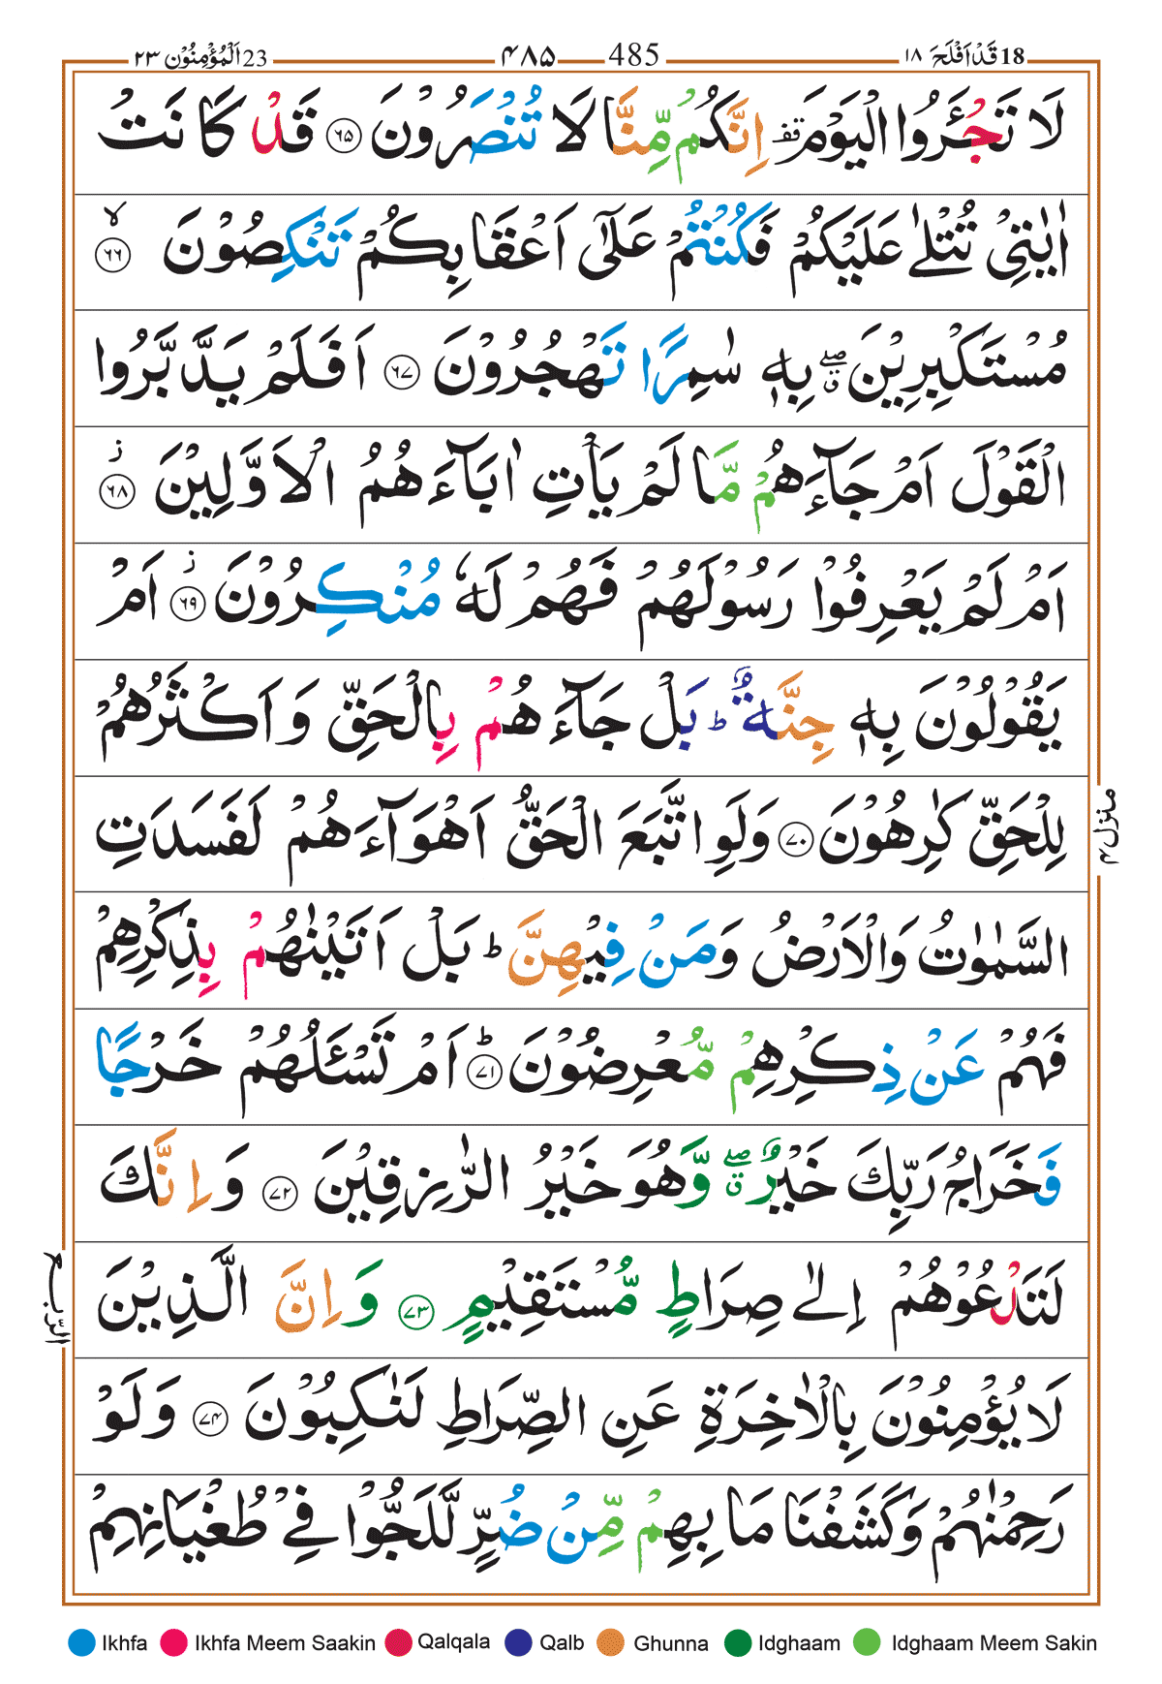 18 قَدۡ اَفۡلَحَ ١٨ 485 ۴۸۵ 23 اَلۡمُؤۡمِنُوۡن ٢٣
لَا تَجۡـَٔرُوا الۡيَوۡمَ‌ قف اِنَّكُمۡ مِّنَّا لَا تُنۡصَرُوۡنَ ﴿۶۵﴾ قَدۡ كَانَتۡ
اٰيٰتِىۡ تُتۡلٰى عَلَيۡكُمۡ فَكُنۡتُمۡ عَلٰٓى اَعۡقَابِكُمۡ تَنۡكِصُوۡنَۙ ﴿۶۶﴾
مُسۡتَكۡبِرِيۡنَ ‌ۖۗ بِهٖ سٰمِرًا تَهۡجُرُوۡنَ ﴿۶۷﴾ اَفَلَمۡ يَدَّبَّرُوا
الۡقَوۡلَ اَمۡ جَآءَهُمۡ مَّا لَمۡ يَاۡتِ اٰبَآءَهُمُ الۡاَوَّلِيۡنَ ز ﴿۶۸﴾
اَمۡ لَمۡ يَعۡرِفُوۡا رَسُوۡلَهُمۡ فَهُمۡ لَهٗ مُنۡكِرُوۡنَ ز ﴿۶۹﴾ اَمۡ
يَقُوۡلُوۡنَ بِهٖ جِنَّةٌ  ؕ بَلۡ جَآءَهُمۡ بِالۡحَـقِّ وَاَكۡثَرُهُمۡ
لِلۡحَقِّ كٰرِهُوۡنَ ﴿۷۰﴾ وَلَوِ اتَّبَعَ الۡحَـقُّ اَهۡوَآءَهُمۡ لَفَسَدَتِ
السَّمٰوٰتُ وَالۡاَرۡضُ وَمَنۡ فِيۡهِنَّ‌ؕ بَلۡ اَتَيۡنٰهُمۡ بِذِكۡرِهِمۡ
فَهُمۡ عَنۡ ذِكۡرِهِمۡ مُّعۡرِضُوۡنَؕ ﴿۷۱﴾ اَمۡ تَسۡـَٔـلُهُمۡ خَرۡجًا
فَخَرَاجُ رَبِّكَ خَيۡرٌ‌ ‌ۖۗ وَّهُوَ خَيۡرُ الرّٰزِقِيۡنَ ﴿۷۲﴾ وَاِنَّكَ
لَـتَدۡعُوۡهُمۡ اِلٰى صِرَاطٍ مُّسۡتَقِيۡمٍ ﴿۷۳﴾ وَاِنَّ الَّذِيۡنَ
لَا يُؤۡمِنُوۡنَ بِالۡاٰخِرَةِ عَنِ الصِّرَاطِ لَـنٰكِبُوۡنَ ﴿۷۴﴾ وَلَوۡ
رَحِمۡنٰهُمۡ وَكَشَفۡنَا مَا بِهِمۡ مِّنۡ ضُرٍّ لَّـلَجُّوۡا فِىۡ طُغۡيَانِهِمۡ
منزل ۴
الرّبع
Ikhfa Ikhfa Meem Saakin Qalqala Qalb Ghunna Idghaam Idghaam Meem Sakin